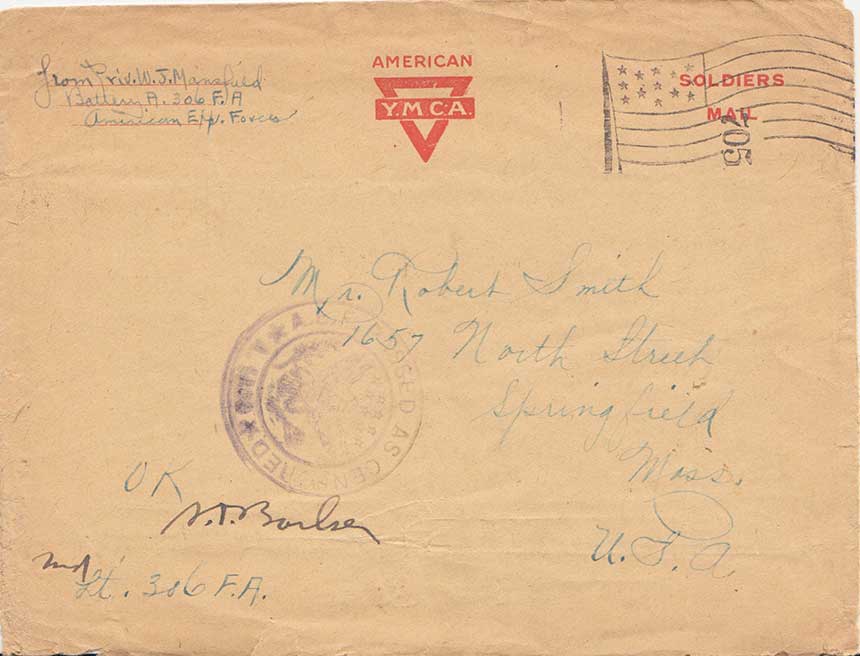 From Priv. W. J. Mansfield
Battery A. 306 F.A
American Exp. Forces
AMERICAN
Y.M.C.A.
SOLDIERS
MAIL
705
Mr. Robert Smith
1657 North Street
Springfield
Mass.
U.S.A
A.E.F. PASSED AS CENSORED
OK
Lt. 306 F.A.